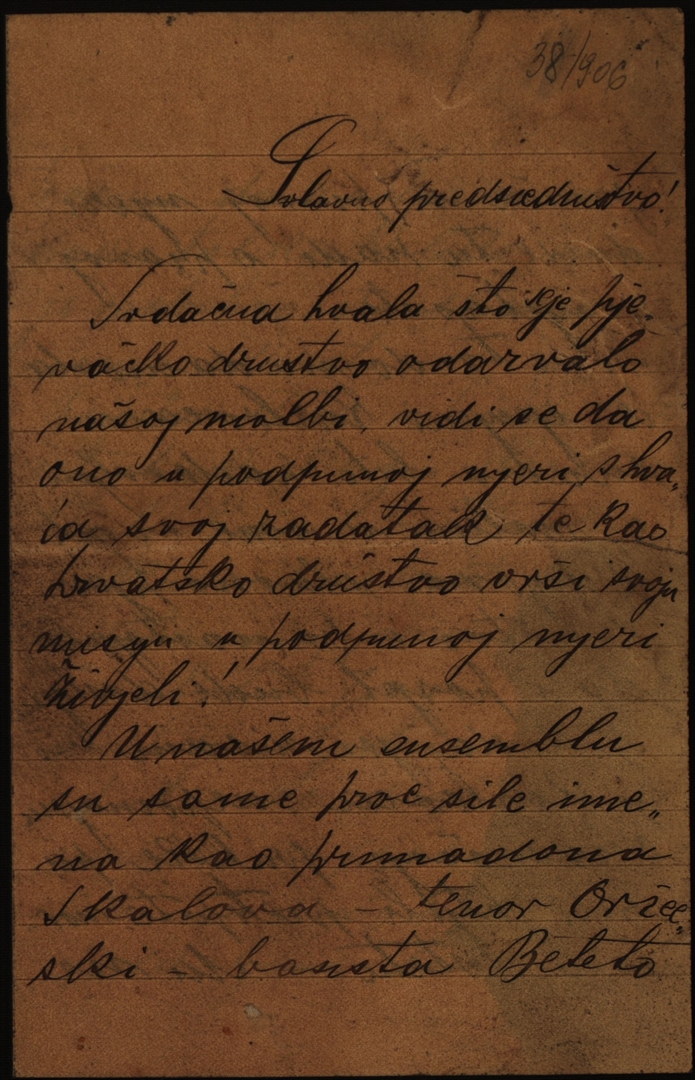 38/906
Slavno predsjedništvo!
Srdačna hvala što se je pje„
vačko društvo odazvalo
našoj molbi, vidi se da
ono u podpunoj mjeri shva„
ća svoj zadatak te kao
hrvatsko društvo vrši svoju
misiju u podpunoj mjeri
Živjeli!
U našem ensemblu
su same prve sile ime„
na kao primadona
Skalova – tenor Oržel„
ski – basista Betetto